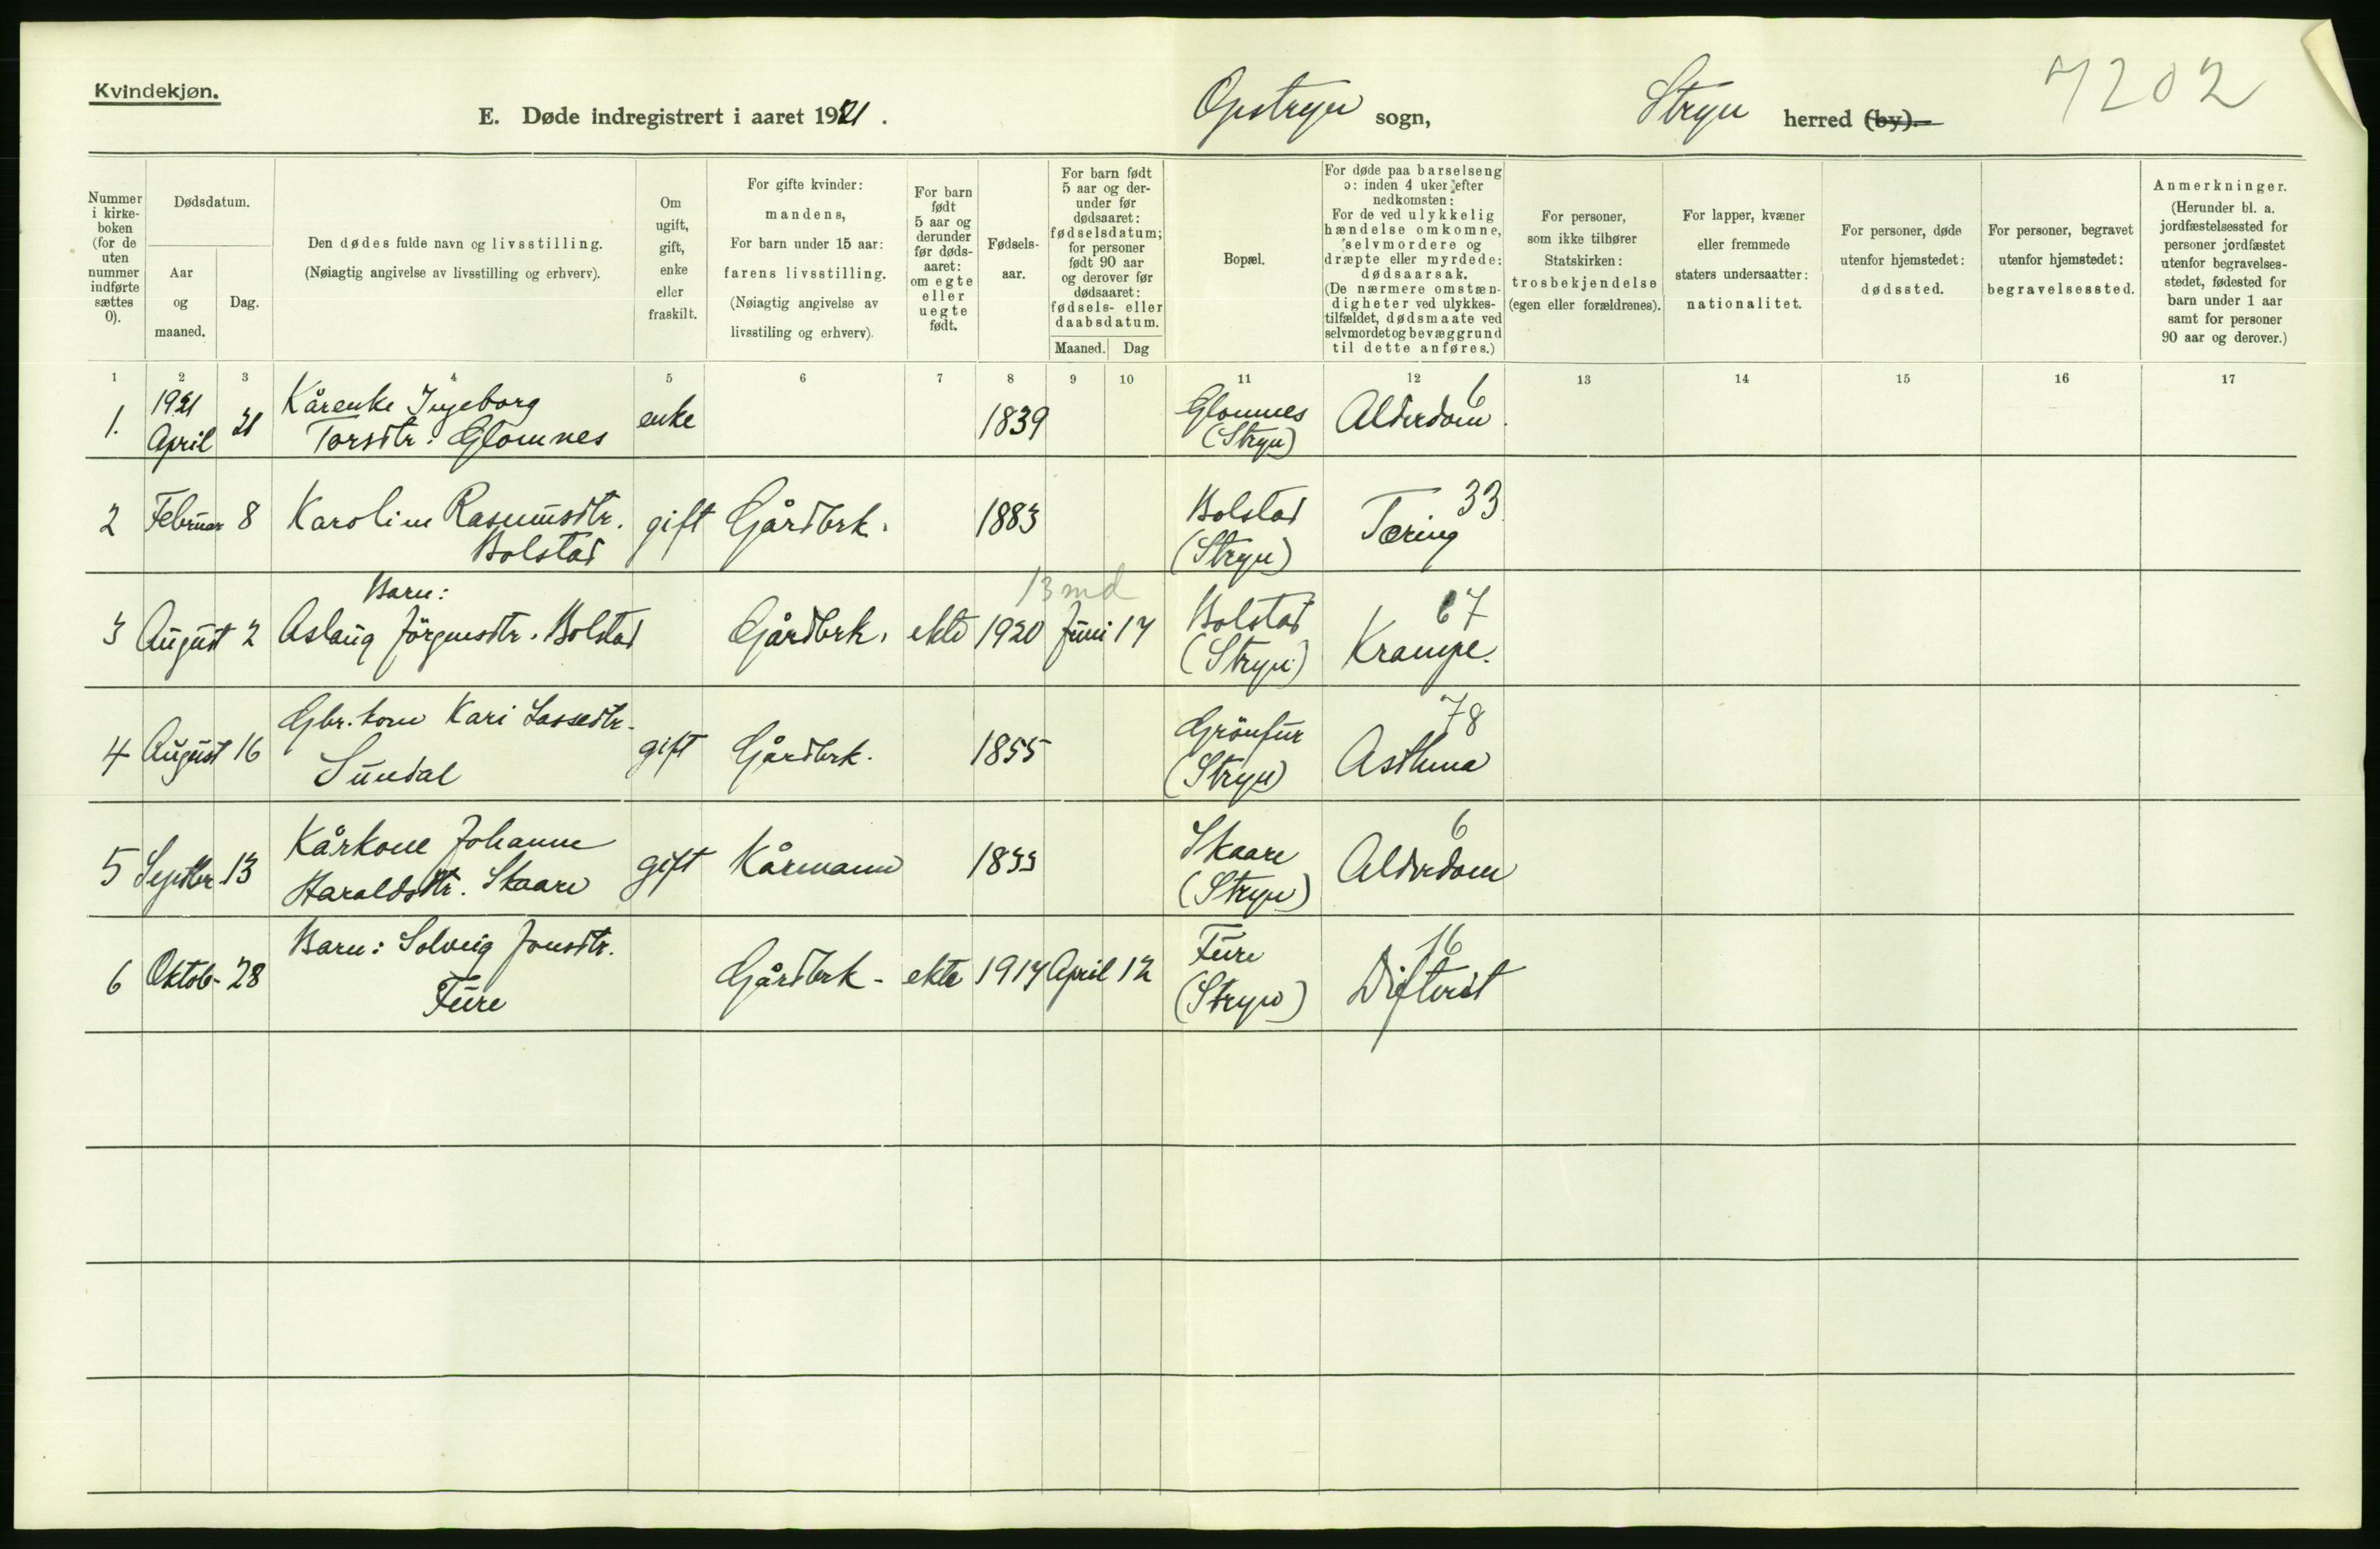 Kvindekjøn.
E. Døde indregistrert i aaret 1921.
Opstryn sogn,
Stryn herred (by).
7202
Nummer i kirke-boken (for de uten nummer indførte sættes 0).
Dødsdatum.
Aar og maaned.
Dag.
Den dødes fulde navn og livsstilling.
(Nøiagtig angivelse av livsstilling og erhverv).
Om ugift, gift, enke eller fraskilt.
For gifte kvinder:
mandens,
For barn under 15 aar:
farens livsstilling.
(Nøiagtig angivelse av
livsstiling og erhverv).
For barn født 5 aar og derunder før døds-aaret: om egte eller uegte født.
Fødsels-aar.
For barn født 5 aar og der-under før dødsaaret: fødselsdatum; for personer født 90 aar og derover før dødsaaret: fødsels- eller daabsdatum.
Maaned. Dag
Bopæl.
For døde paa barselseng ɔ: inden 4 uker efter nedkomsten:
For de ved ulykkelig hændelse omkomne, selvmordere og dræpte eller myrdede: dødsaarsak.
(De nærmere omstæn-digheter ved ulykkes-tilfældet, dødsmaate ved selvmordet og bevæggrund til dette anføres.)
For personer, som ikke tilhører Statskirken: trosbekjendelse (egen eller forældrenes).
For lapper, kvæner eller fremmede staters undersaatter: nationalitet.
For personer, døde utenfor hjemstedet: dødssted.
For personer, begravet utenfor hjemstedet: begravelsessted.
Anmerkninger.
(Herunder bl. a. jordfæstelsessted for personer jordfæstet utenfor begravelses-stedet, fødested for barn under 1 aar samt for personer 90 aar og derover.)
1 2 3 4 5 6 7 8 9 10 11 12 13 14 15 16 17
1. 1921 April 21 Kårenke Ingeborg Torsdtr. Glomnes enke 1839 Glomnes (Stryn) Alderdom. 6
2 Februar 8 Karoline Rasmusdtr. Bolstad gift Gårdbrk. 1883 Bolstad (Stryn) Tæring 33
3 August 2 Barn: Aslaug Jörgensdtr. Bolstad Gårdbrk. ekte 1920 Juni 17 13 md Bolstad (Stryn) Krampe. 67
4 August 16 Gbr. kone Kari Lassedtr. Sundal gift Gårdbrk. 1855 (Stryn) Asthma 78
5 Septbr 13 Kårkone Johanne Haraldsdtr. Skaare gift Kårmann Skaare (Stryn) Alderdom 6
6 Oktob- 28 Barn: Solveig Jonsdtr. Fure Gårdbrk - ekte 1917 April 12 Fure (Stryn) Difterit 16